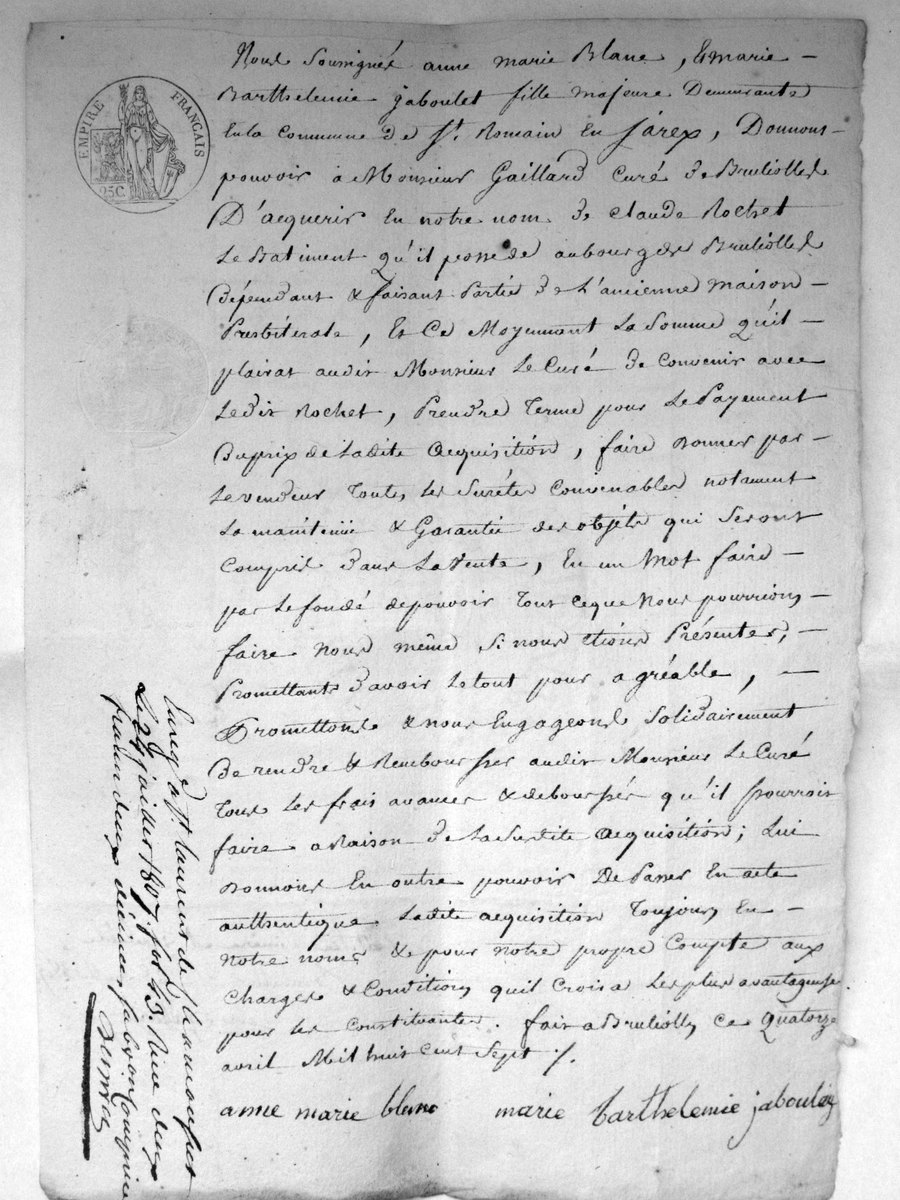 EMPIRE FRANÇAIS
25C.
Nous Soussignés anne marie Blanc, & marie
Barthelemie jaboulet fille majeure Demeurants
En la Commune de St. Romain En jarex, Donnons
pouvoir à Monsieur Gaillard Curé de Bruliolles
D'acquerir En notre nom de Claude Rochet
Le Batiment qu'il possede au bourg de Bruliolles
Dépendant & faisant Partie de L'ancienne maison
Presbiterale, Et Ce Moyennant La Somme qu'il
plairat audit Monsieur Le Curé de Convenir avec
Ledit Rochet, Prendre Terme pour Le Payement
Du prix de Ladite Acquisition, faire Donner par
Le vendeur Toutes les Suretés Convenables notament
La maintenüe & Garantie des objéts qui Seront
Compris dans La Vente, En un Mot faire
par Le fondé de pouvoir Tout ce que Nous pourrions
faire Nous même Si nous étions Présentes,
Promettants d'avoir Le tout pour agréable,
Promettons & nous Engageons Solidairement
De rendre & Rembourser audit Monsieur Le Curé
Tous Les frais avancés & déboursés qu'il pourroit
faire a Raison de La Susdite Acquisition; Lui
Donnons En outre pouvoir De Passer En acte
authentique Ladite acquisition Toujours En
Notre noms & pour Notre propre Compte aux
Charges & Conditions quil Croira Les plus avantageuse
pour les Constituantes. fait a Bruliolles ce Quatorze
avril Mil huit cent Sept ./.
anne marie blanc marie barthelemie jaboulay
Enreg. à St laurent de Chamousset
Le 24 juillet 1807 fol. 43. Reçu deux
francs deux décimes